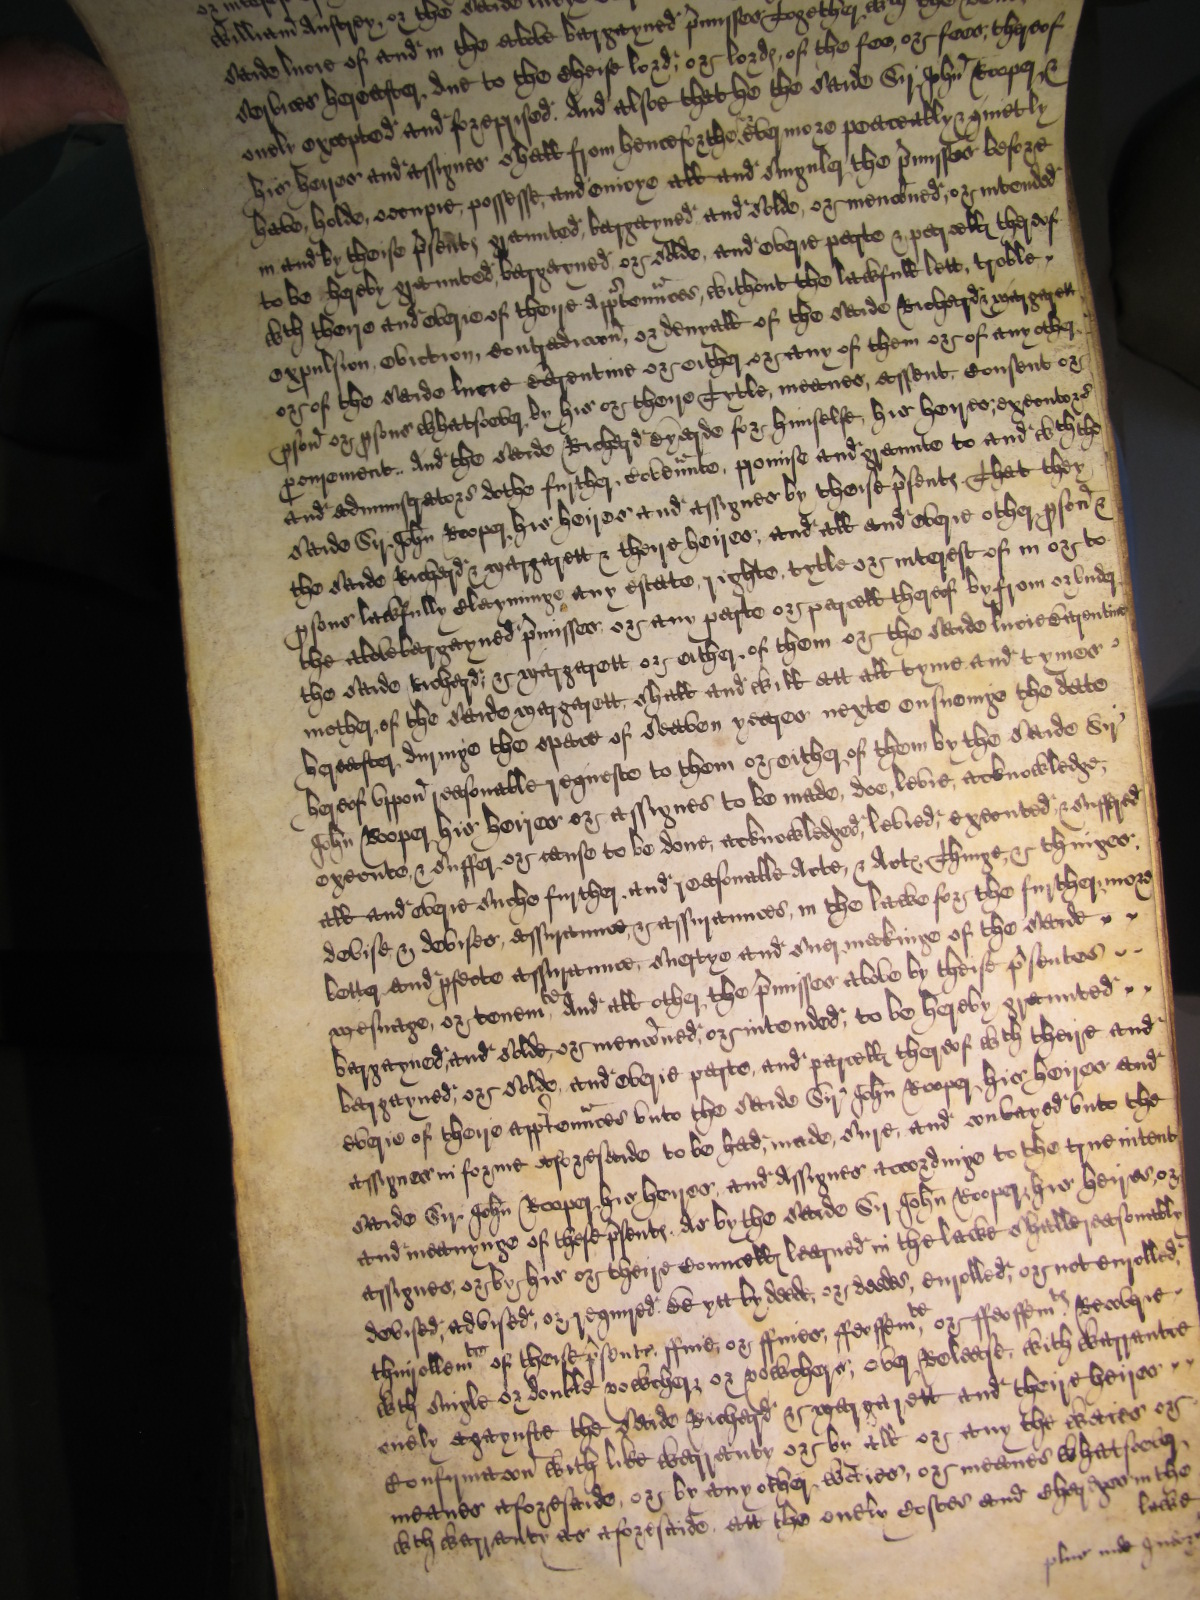 William Anstrey, or the saide Lucie
saide lucie of and in the above bargayned p'misses Together wth the
services hereafter due to the cheise lord, or lords, of the fee, or fees, thereof
onely excepted and foreprised. And alsoe that he the saide Sir John Rooper, &
his heires and assignes shall from henceforthe ever more peaceably & quietly
have, holde, occupie, possesse, and enioye all and singuler the p'misses before
in and by theise p'sents graunted, bargayned and solde, or menconed, or intended
to be hereby graunted, bargayned, or solde, and everie parte & parcell thereof
wth theire and everie of theire app'tennces, without the lawfull lett, troble
expulsion, eviction, contradiccon, or denyall of the saide Richard & Margarett
or of the saide lucie or either or any of them or of any other
p'son or p'sons whatsoever, by his or theire Tytle, meanes, assent, Consent or
p'curement. And the saide Richard for himselfe, his heires, executors
and administrators dothe further Covennte, promise and graunte to and wth the
saide Sir John Rooper, his heires and assignes by theise p'sents That they
the saide Richard & Margarett & theire heires, and all and everie other p'son &
p'sons lawfully clayminge any estate, righte, tytle or interest of in or to
the above bargayned p'misses or any parte or parcell thereof by from or under
the saide Richard, & Margarett or either of them or the saide lucie
mother of the saide Margarett, shall and will att all tyme and tymes
hereafter, duringe the space of seaven yeares nexte ensueinge the date
hereof uppon reasonable requeste to them or either of them by the saide Sir
John Rooper his heires or assignes to be made, doe, levie, acknowledge,
execute, & suffer or cause to be done, acknowledged, levied, executed, & suffred
all and everie suche further and reasonable Acte, & Acts, Thinge, & thinges,
devise & devises, assurance, & assurances, in the lawe for the further, more
better and p'fecte assurance, suertye and suer makinge of the saide
mesuage, or tenemte, And all other the p'misses above by theise p'sentes
bargayned, and solde, or menconed, or intended, to be hereby graunted
bargayned, or solde, and everie parte, and parcell thereof wth theire and
everie of theire app'tennces unto the saide Sir John Rooper, his heires and
assignes in forme aforesaide to be had, made, sure, and conveyed unto the
saide Sir John Rooper, his heires, and Assignes accordinge to the true intent
and meanynge of these p'sents. As by the saide Sir John Rooper, his heires, or
assignes, or by his or theire Councell learned in the lawe shalbe reasonably
devised, advised, or required. Be ytt by deede, or deedes, enrolled, or not enrolled,
thinrollemte of theise p'sents, ffine, or ffines, ffeoffemte, or ffeoffemts, Recoverie
wth single or double vowcher or vowchers, over Release, with warrantie
onely agaynste the saide Richard & Margarett and theire heires
Confirmacon with like warranty or by all or any the waies or
meanes aforesaide, or by any other waies, or meanes whatsoever,
wth warranty as aforesaide. att the onely Costes and Charges in the
lawe